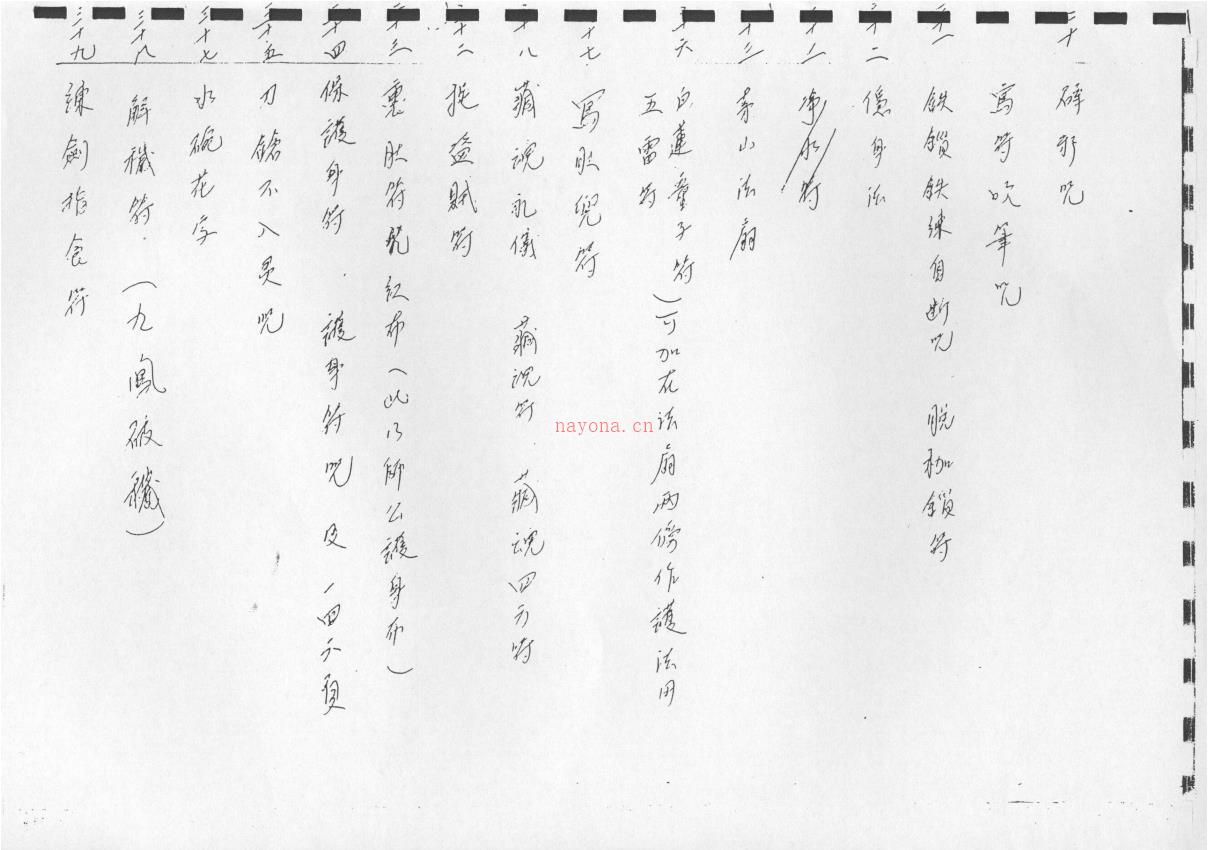 二十 辟邪咒
寫符吹筆咒
鉄鎖鉄練自断咒 脫枷鎖符
二十二 隱身法
淨水符
茅山法扇
二十六 白蓮童子符
五雷符
(可加在法扇兩傍作護法用
二十七 寫肚兜符
二十八 藏魂礼儀 藏魂符 藏魂四方符
捉盜賊符
三十三 裹肚符 紅布(此乃師公護身布)
三十四 保護身符 護身符咒 及 一四六頁
三十五 刀鎗不入灵咒
三十七 水碗花字
三十八 解穢符.(九鳳破穢)
三十九 練劍指食符
nayona.cn